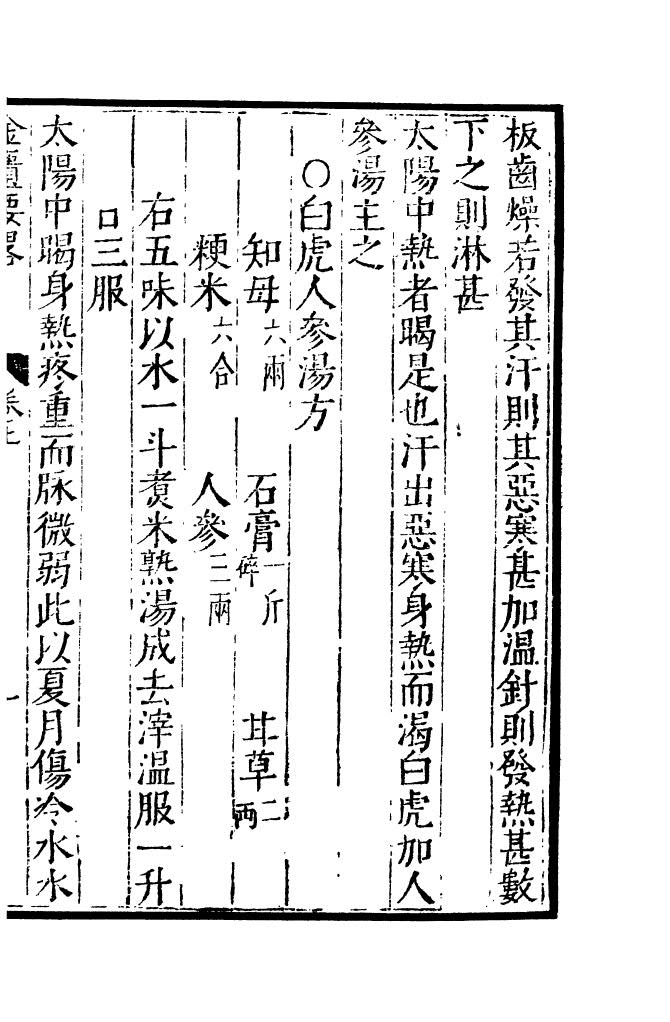 板齒燥若發其汗則其惡寒甚加溫針則發熱甚數
下之則淋甚
太陽中熱者暍是也汗出惡寒身熱而渴白虎加人
參湯主之
○白虎人參湯方
知母六兩 石膏一斤碎 甘草二兩
粳米六合 人參三兩
右五味以水一斗煑米熟湯成去滓溫服一升
日三服
太陽中暍身熱疼重而脉微弱此以夏月傷冷水水
金匱要畧 卷上